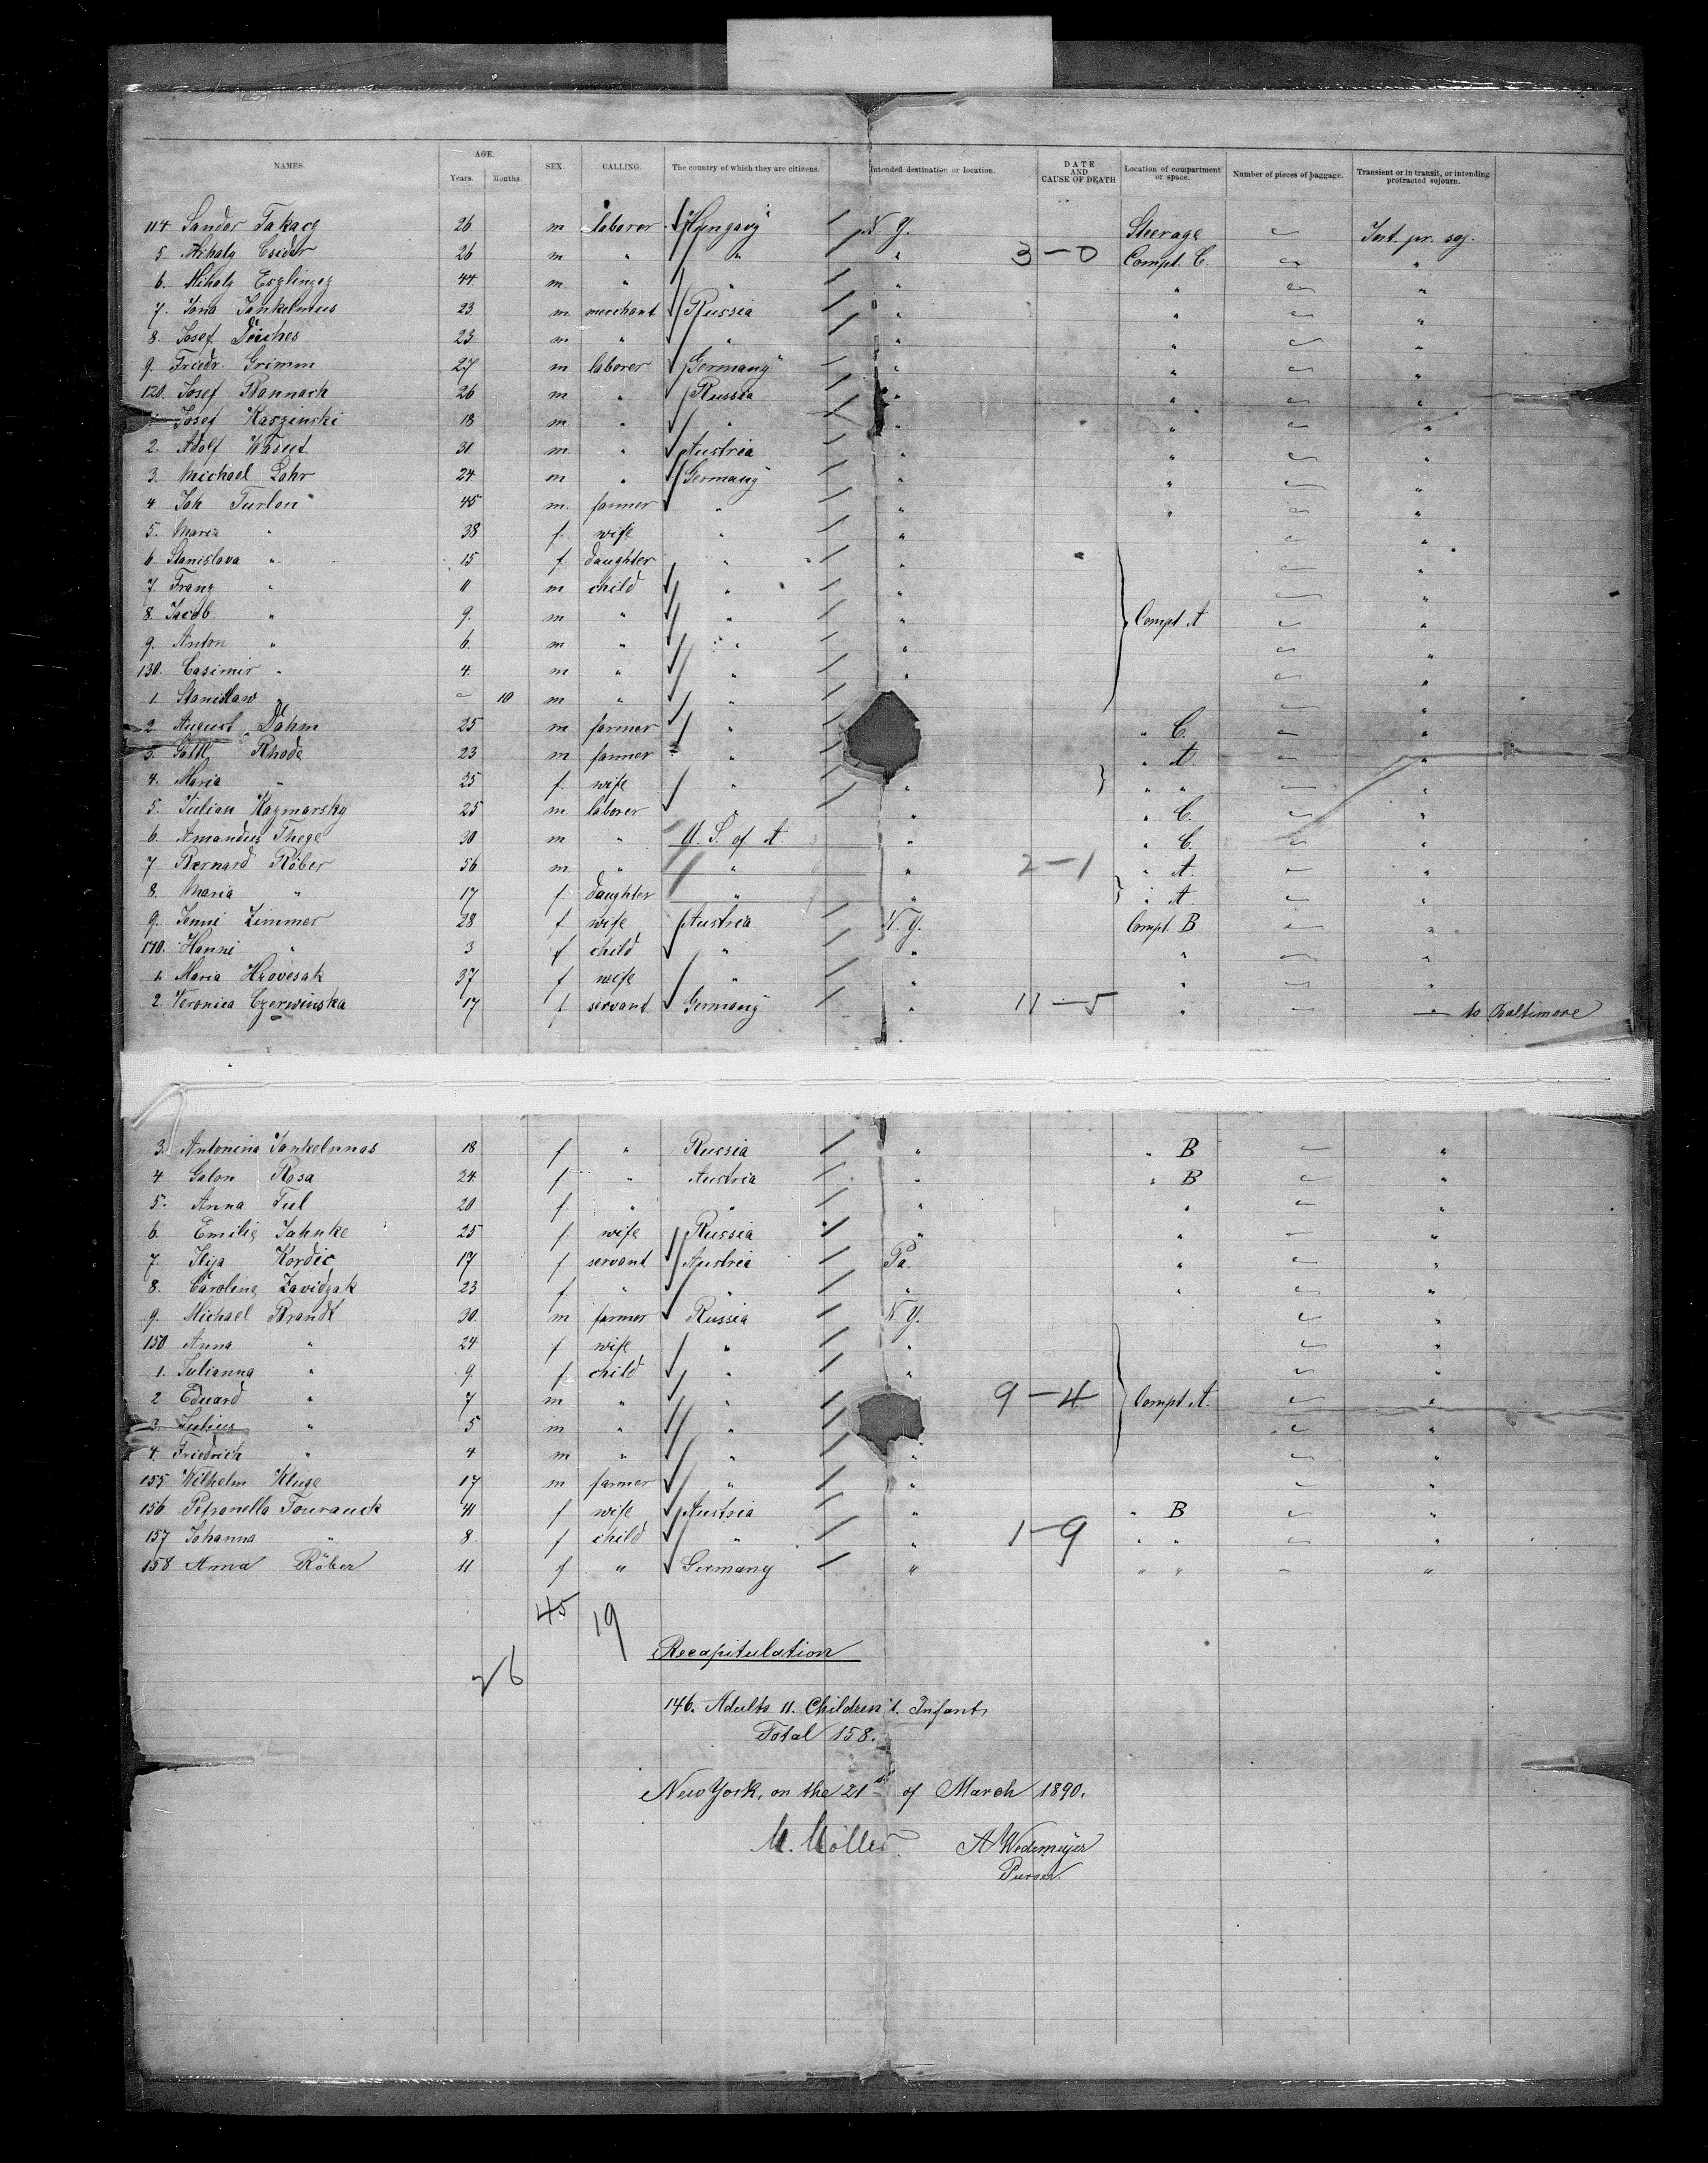 NAMES. AGE. Years. Months. SEX. CALLING. The country of which they are citizens. Intended destination or location. DATE AND CAUSE OF DEATH Location of compartment or space. Number of pieces of baggage. Transient or in transit, or intending protracted sojourn.
114 Sandor Takacz 26 m laborer Hungary N. Y. Steerage Int. pr. soj.
5. Mihaly Csidor 26 m " " " 3-0 Compt. C. "
6. Mihaly Eszlingez 44 m " " " " "
7. Jona Jankelmus 23 m merchant Russia " " "
8. Josef Deiches 23 m " " " " "
9. Friedr. Grimm 27 m laborer Germany " " "
120. Josef Bannach 26 m " Russia " " "
Josef Kaszinski 18 m " " " " "
2. Adolf Wasut 31 m " Austria " " "
3. Michael Lohr 24 m " Germany " " "
4 Joh Turlon 45 m farmer " " " "
5. Maria " 38 f. wife " " "
6. Stanislava " 15 f. daughter " " "
7. Franz " 11 m child " " "
8. Jacob " 9. m " " " Compt A "
9. Anton " 6. m " " " "
130. Casimir " 4. m " " " "
1. Stanislaw " 10 m " " "
2. August Dahm 25 m farmer " " C. "
3. Gottl Rhode 23 m farmer " " A. "
4. Maria " 25 f. wife " " " " "
5. Julian Kazmarsky 25 m laborer " " " C. "
6. Amandus Thege 30 m " U. S. of A. " " C. "
7 Bernard Röber 56 m " " " 2-1 " A. "
8. Maria " 17 f. daughter " " " A. "
9. Jenni Zimmer 28 f wife Austria N. Y. Compt. B "
140. Hanni " 3 f child " " " "
1. Maria Hrovesak 37 f wife " " " "
2. Veronica Czerwinska 17 f servant Germany " 11-5 " " to Baltimore
3. Antonina Jankelnnas 18 f " Russia " " B "
4 Galon Rosa 24 f " Austria " " B "
5. Anna Tul 20 f. " " " " "
6. Emilie Jahnke 25 f. wife Russia " " "
7. Ilija Kordic 17 f servant Austria Pa. " "
8. Caroline Zavidzak 23 f. " " " " "
9. Michael Brandt 30. m farmer Russia N. Y. "
150 Anna " 24 f wife " " "
1. Julianna " 9. f child " " "
2 Eduard " 7 m " " 9-4 Compt A. "
3. Julius " 5 m " " "
4. Friedrich " 4 m " " " "
155 Wilhelm Kluge 17 m farmer " " "
156 Petronella Tourauck 41 f wife Austria " " B "
157 Johanna " 8 f child " " 1-9 " " "
158 Anna Röber 11 f " Germany " " " "
45 19
26
Recapitulation
146. Adults 11. Children 1. Infants
Total 158.
New York, on the 21st of March 1890.
M. Möller. A Wedemeyer
Purser.